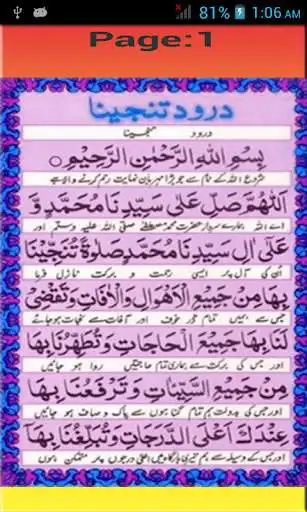 81% 1:06 AM
Page:1
درود تنجينا
درود تنجینا
بِسْمِ اللهِ الرَّحْمٰنِ الرَّحِيْمِ
شروع اللہ کے نام سے جو بڑا مہربان نہایت رحم کرنے والا ہے
اَللّٰهُمَّ صَلِّ عَلٰى سَيِّدِنَا مُحَمَّدٍ وَّ
اے اللہ ہمارے سردار حضرت محمد مصطفٰے صلی اللہ علیہ وسلم اور
عَلٰى اٰلِ سَيِّدِنَا مُحَمَّدٍ صَلٰوةً تُنَجِّيْنَا
اُن کی آل پر ایسی رحمت و برکت نازل فرما
بِهَا مِنْ جَمِيْعِ الْاَهْوَالِ وَالْاٰفَاتِ وَتَقْضِيْ
جس سے ہمیں تمام ڈر خوف اور آفات سے نجات ہو جائے
لَنَا بِهَا جَمِيْعَ الْحَاجَاتِ وَتُطَهِّرُنَا بِهَا
اور جس کی برکت سے ہماری تمام حاجتیں روا ہو جائیں
مِنْ جَمِيْعِ السَّيِّاٰتِ وَتَرْفَعُنَا بِهَا
اور جس کی بدولت ہم تمام گناہوں سے پاک و صاف ہو جائیں
عِنْدَكَ اَعْلَى الدَّرَجَاتِ وَتُبَلِّغُنَا بِهَا
اور جس کے وسیلہ سے ہم تیری بارگاہ میں اعلٰی درجوں پر متمکن ہوں